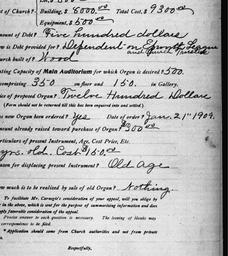 of Church?. Building, $5000.00 Total Cost, $9300.00
Equipment, $500.00
amount of Debt? Five hundred dollars
is Debt provided for? Dependent on Epworth League
and
built of? Wood
ating Capacity of Main Auditorium for which Organ is desired? 500.
comprising 350 on floor and 150. in Gallery.
ice of proposed Organ? Twelve Hundred Dollars
(Form should not be returned till this has been inquired into and settled.)
s new Organ been ordered? Yes Date of order? Jan. 21st 1909.
amount already raised toward purchase of Organ? $300.00
articulars of present Instrument, Age, Cost Price, Etc.
yrs. old. Cost $150.00
eason for displacing present Instrument? Old Age
ow much is to be realized by sale of old Organ? Nothing.
To facilitate Mr. Carnegie's consideration of your appeal, will you oblige by
in the above, which is sent for the purpose of summarizing information and does
ply favorable consideration of the appeal.
Precise answer to each question is necessary. The issuing of blanks may
correspondence to be required.
* Application should come from Church authorities and not from private
Respectfully,